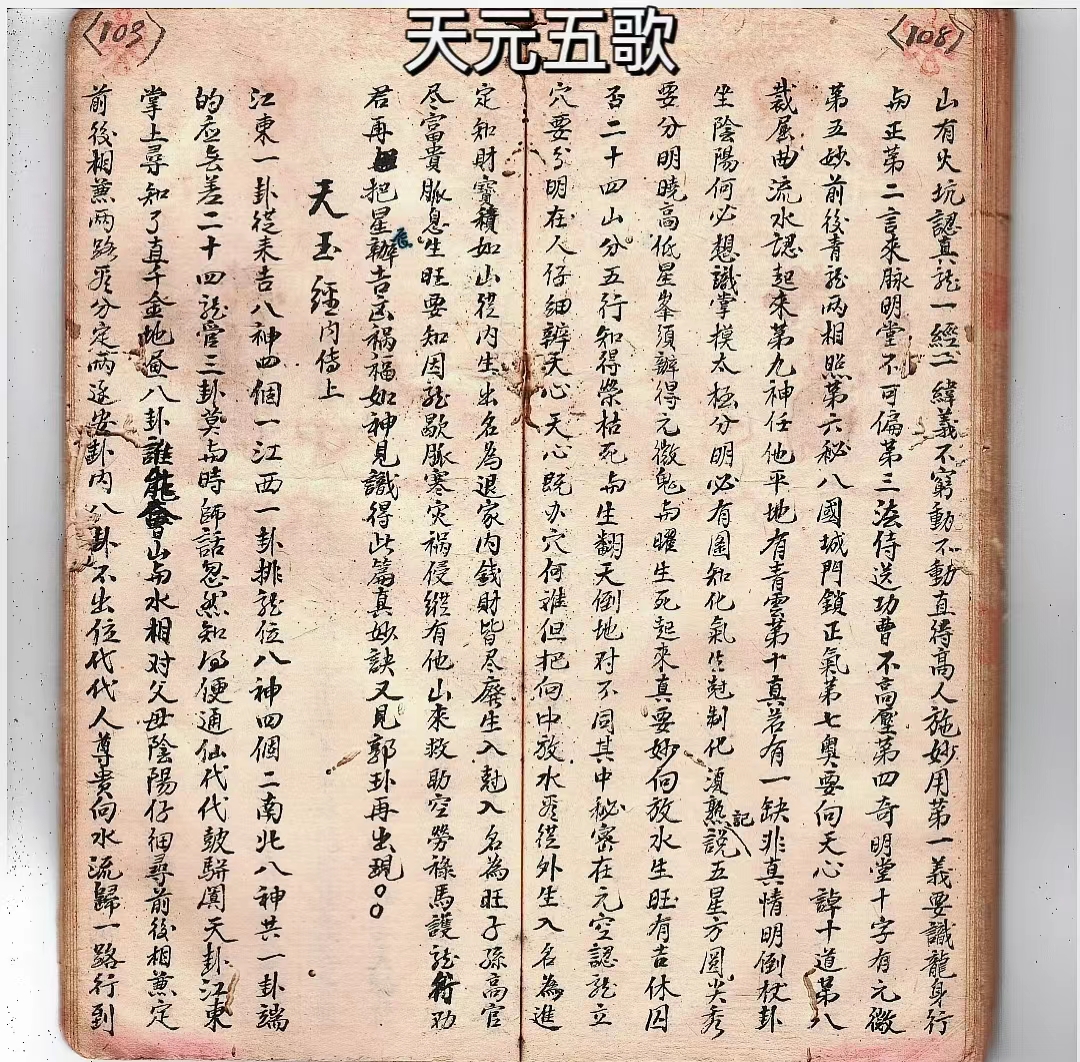 天元五歌
〈108〉
山有火坑認真龍一經一緯義不窮動不動直待高人施妙用第一義要識龍身行
与正第二言來脉明堂不可偏第三法侍送功曹不高壓第四奇明堂十字有元微
第五妙前後青龍兩相照第六秘八國城門鎖正氣第七奧要向天心十道第八
裁屈曲流水認起來第九神任他平地有青雲第十真若有一缺非真情明倒杖卦
坐陰陽何必想識掌模太極分明必有圖知化氣生尅制化須熟記說五星方圓尖秀
要分明曉高低星峯須辦得元微鬼与曜生死起來真要妙向放水生旺有吉休囚
否二十四山分五行知得榮枯死与生翻天倒地对不同其中秘密在元空認龍立
穴要分明在人仔細辨天心天心既办穴何难但把向中放水看從外生入名為進
定知財寶積如山從内生出名為退家内錢財皆尽廢生入尅入名為旺子孫高官
尽富貴脉息生旺要知因龍歇脉寒灾禍侵縱有他山來救助空勞祿馬護龍行劝
君再把星辰辦吉凶禍福如神見識得此篇真妙訣又見郭卦再出現。。
〈109〉
天玉經内傳上
江東一卦從来吉八神四個一江西一卦排龍位八神四個二南北八神共一卦端
的应無差二十四龍管三卦莫与時師話忽然知得便通仙代代皷駢闐天卦江東
掌上尋知了直千金地畫八卦誰能會山与水相对父母陰陽仔细尋前後相兼定
前後相兼兩路看分定兩邊安卦内八卦不出位代代人尊貴向水流歸一路行到